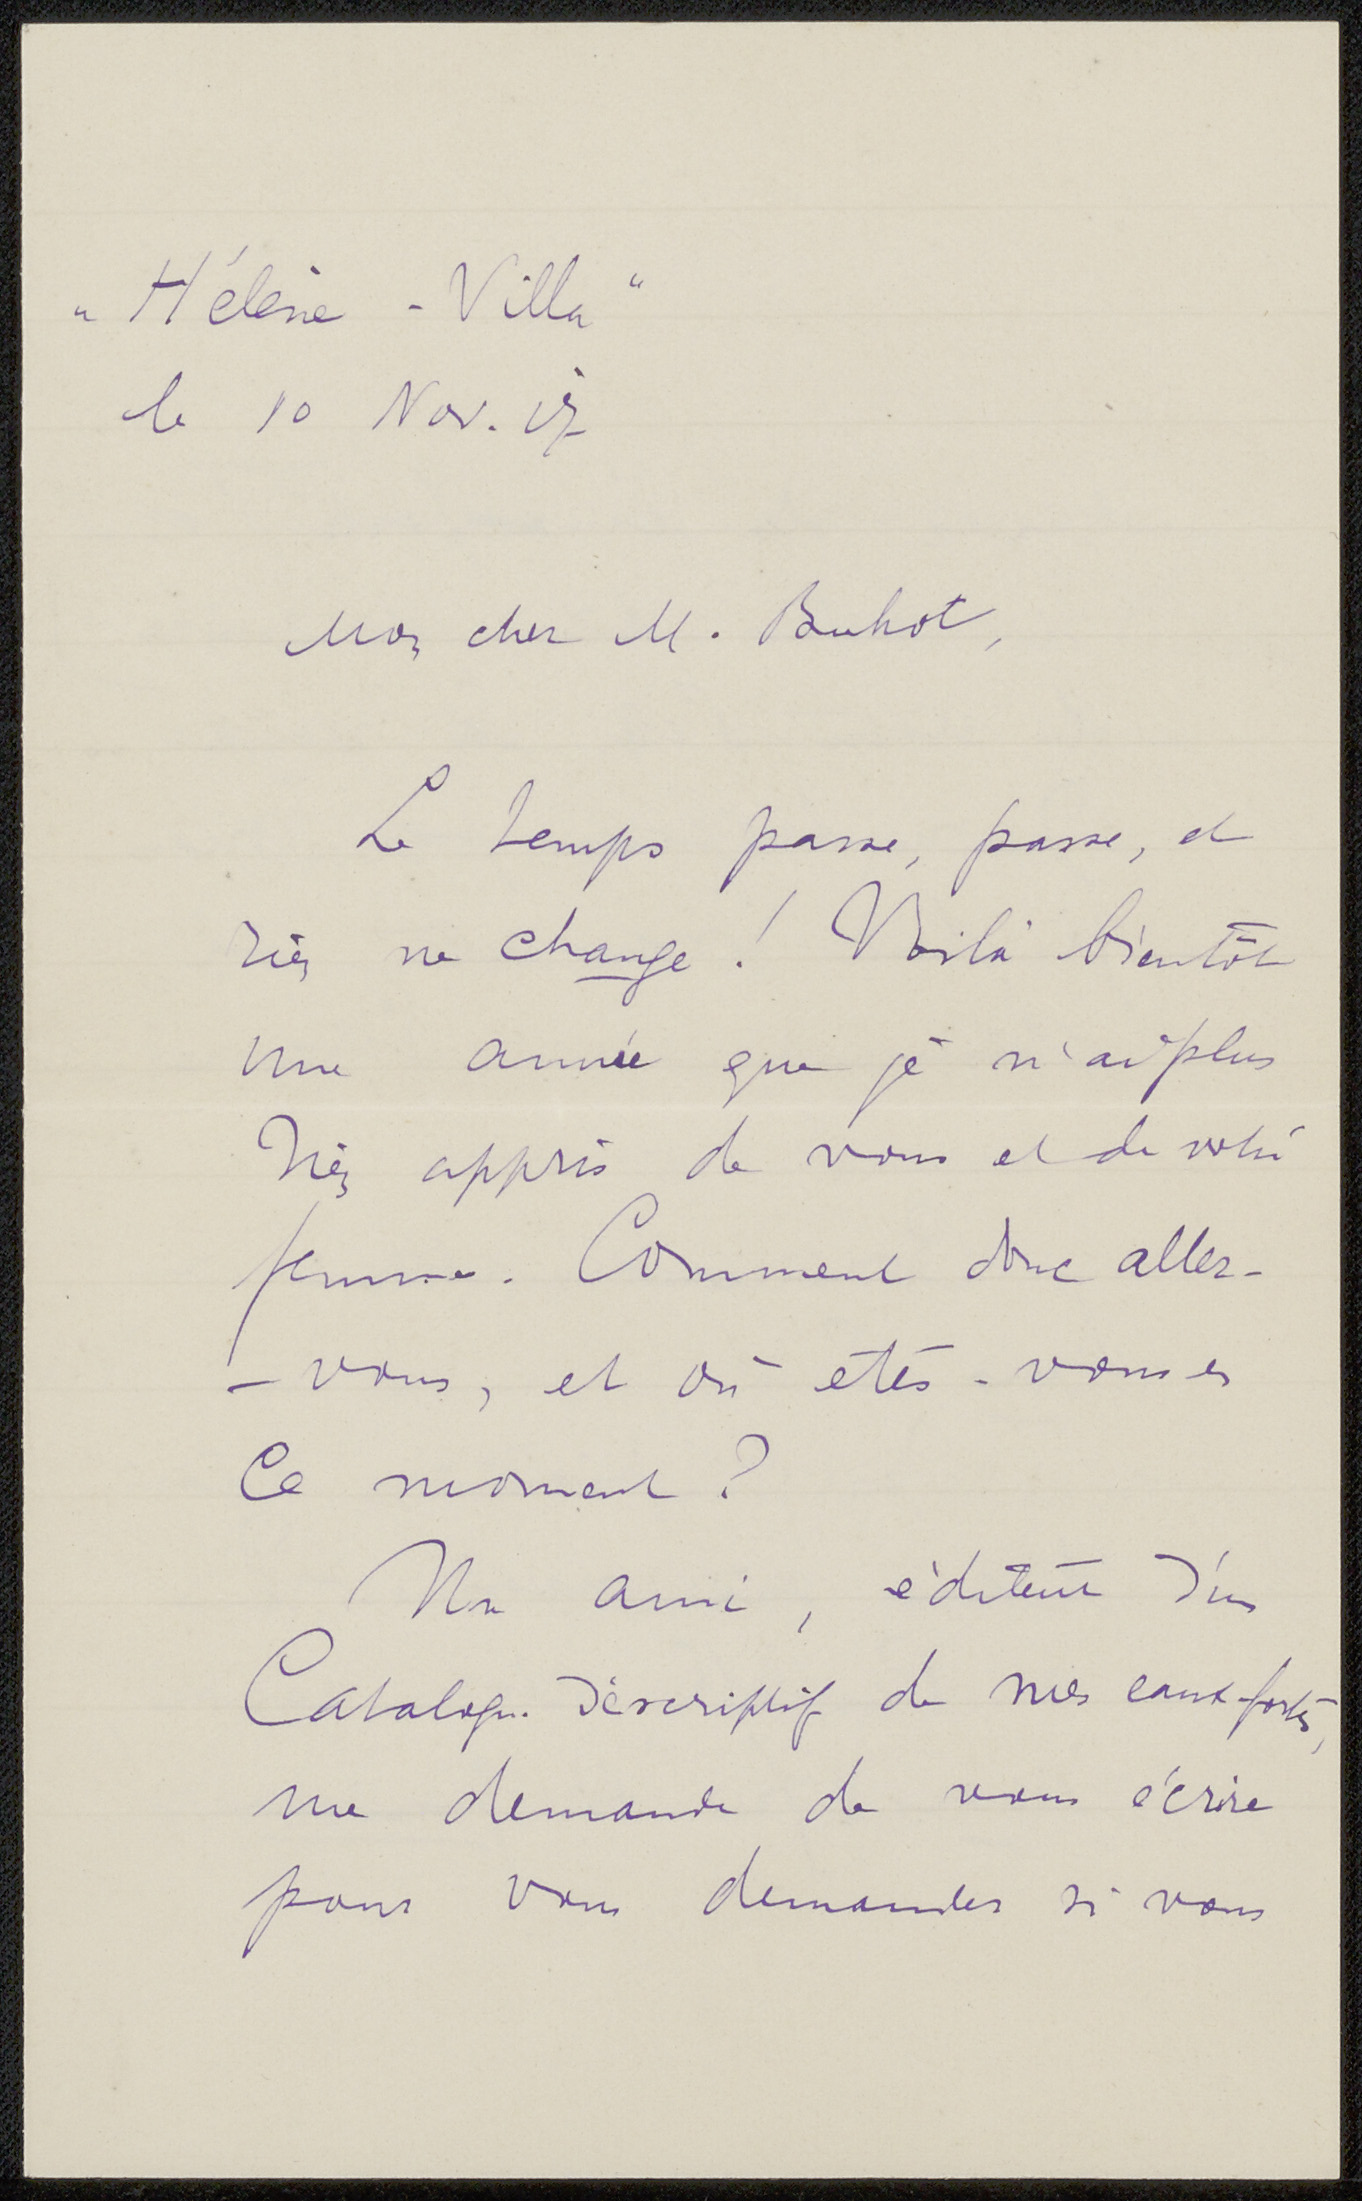 „ Hélène - Villa "
le 10 Nov. 17
Mon cher M. Buhot,
Le temps passe, passe, et
rien ne change ! Voilà bientôt
une année que je n'ai plus
rien appris de vous et de votre
femme. Comment donc allez-
- vous, et où êtes - vous en
ce moment ?
Un ami, éditeur d'un
Catalogue déscriptif de mes eaux-fortes,
me demande de vous écrire
pour vous demander si vous